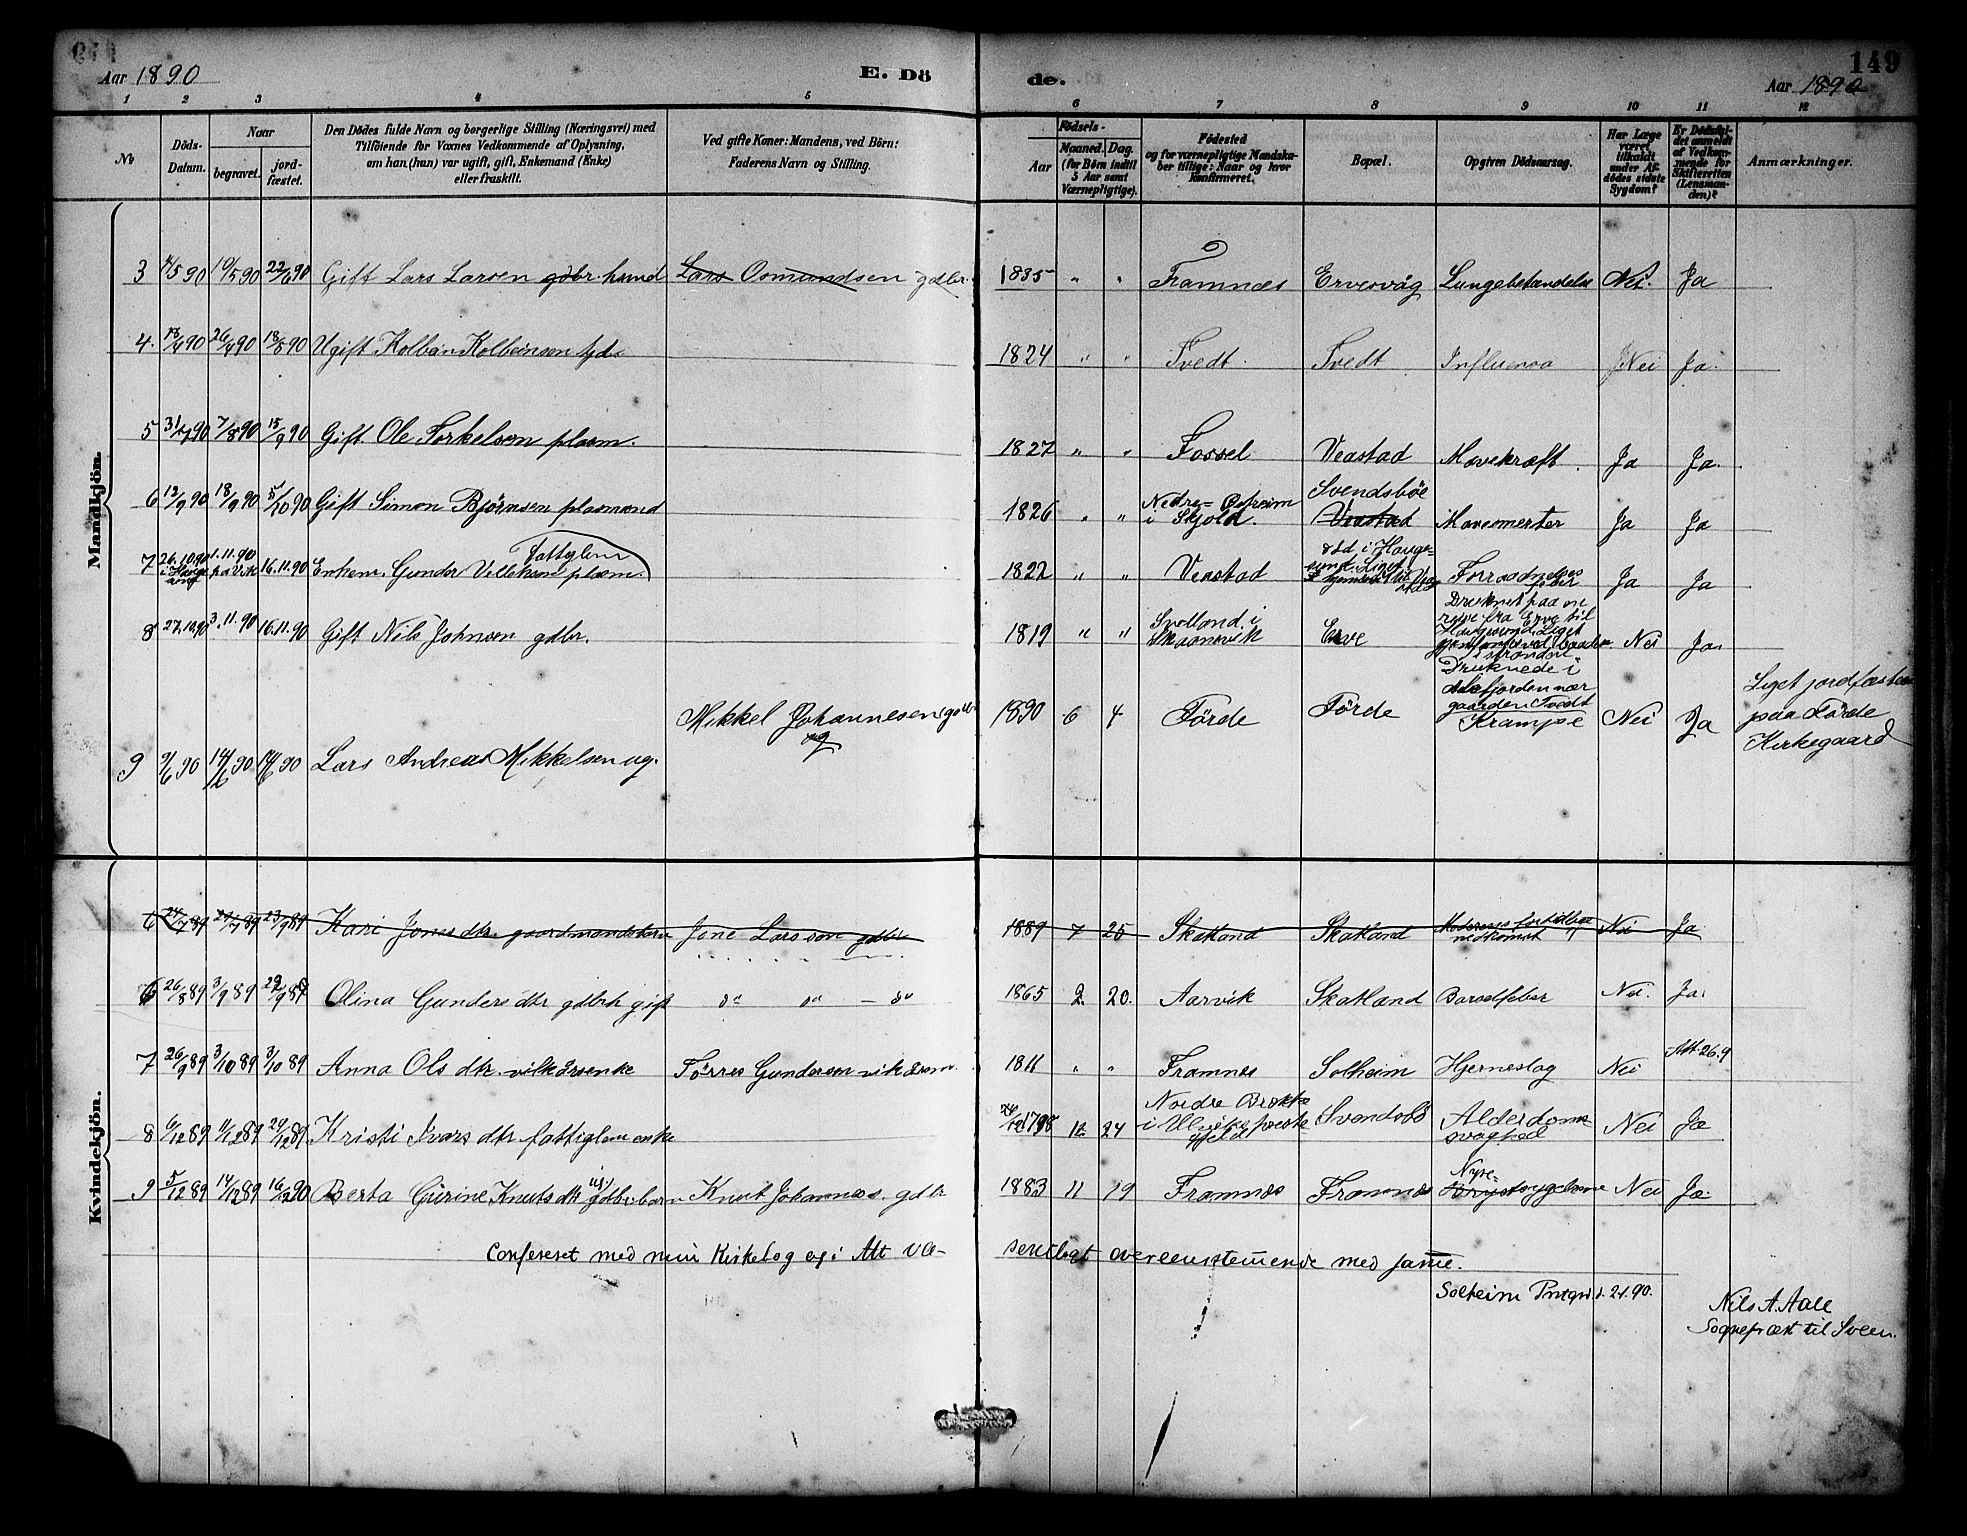 149
Aar 1890 E. Dö de. Aar 1890
1 2 3 4 5 6 7 8 9 10 11 12
No Döds-Datum. Naar begravet. jord-fæstet.
Den Dödes fulde Navn og borgerlige Stilling (Næringsvei) med
Tilföiende for Voxnes Vedkommende af Oplysning,
om han (hun) var ugift, gift, Enkemand (Enke)
eller fraskilt.
Ved gifte Koner: Mandens, ved Börn:
Faderens Navn og Stilling.
Födsels-
Aar Maaned. Dag.
(for Börn indtil
5 Aar samt
Værnepligtige).
Födested
og for værnepligtige Mandska-
ber tillige: Naar og hvor
konfirmeret.
Bopæl.
Opgiven Dödsaarsag.
Har Læge
været
tilkaldt
under Af-
dödes sidste
Sygdom?
Er Dödsfal-
det anmeldt
af Vedkom-
mende for
Skifteretten
(Lensman-
den)?
Anmærkninger.
Mandkjön.
3 4/5 90 10/5 90 22/6 90 Gift Lars Larsen gdbr. husmd Lars Osmundsen gdbr. 1835 " " Framnæs Ervesvåg Lungebetændelse Nei. Ja
4. 18/4 90 26/4 90 18/8 90 Ugift Kolban Kolbeinsen 1824 " " Tvedt. Tvedt Influensa Nei Ja.
5 31/7 90 7/8 90 15/9 90 Gift Ole Torkelsen plasm. 1827 " " Fossel Veastad Mavekræft. Ja Ja.
6 12/9 90 18/9 90 5/10 90 Gift Simon Björnsen plasmand 1826 " " Nedre-
i Skjold. Svendsböe Veastad Ja Ja
7 26.10.90 1.11.90 på Vik 16.11.90 Enkem. Gunder plasm. Fattiglem 1822 " " Veastad död i Hauge-
sund. Liget Ja Ja
8 27.10.90 3.11.90 16.11.90 Gift Nils Johnsen gdbr. 1819 " " i
Skaanevik Erve Druknet paa en
reise fra Erve til
Haugesund. Liget Nei Ja.
9 9/6 90 14/6 90 14/6 90 Lars Andreas Mikkelsen ug. Mikkel Johannesen gdbr 1890 6 4 Förde Förde Druknede i
nær
gaarden Tvedt
Krampe Nei Ja Liget jordfæstet
paa Förde
Kirkegaard
Kvindekjön.
6 24/7 89 29/7 89 23/9 89 Kari Jonesdtr. gaardmandsbarn Jone Larsson gdbr 1889 7 25 Skatland Skatland Moderens fortidlige
nedkomst Nei Ja
6 26/8 89 3/9 89 22/9 89 Olina Gundersdtr gdbrk gift do do — do 1865 2 20. Aarvik Skatland Barselfeber Nei. Ja.
7 26/9 89 3/10 89 3/10 89 Anna Olsdtr. enke Törres Gunderson 1811 " " Framnes Solheim Hjerneslag Nei Att. 26.9
8 6/12 89 11/12 89 29/12 89 Kristi Ivarsdtr fattiglem enke 1798 12 24 Nordre
i Svendsbö Alderdoms
svaghed Nei Ja
9 5/12 89 14/12 89 16/2 90 Berta Gurine Knutsdtr ug. gdbr. barn Knut Johanness. gdbr 1883 11 19 Framnæs Framnæs Nyre-
Brystsygdom Nei Ja.
Confereret med min Kirkebog og i Att væ-
sentligst overeensstemmende med samme.
Solheim 90.
Nils A. Aall
Sognepræst til Sveen.